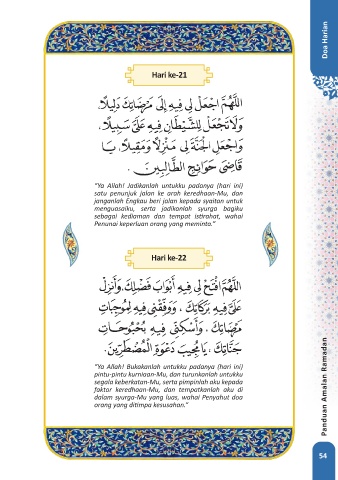 Doa Harian
Hari ke-21
اَللَّهُمَّ اجْعَلْ لِي فِيهِ إِلَى مَرْضَاتِكَ دَلِيلًا،
وَلَا تَجْعَلْ لِلشَّيْطَانِ فِيهِ عَلَيَّ سَبِيلًا،
وَاجْعَلِ الْجَنَّةَ لِي مَنْزِلًا وَمَقِيلًا، يَا
قَاضِيَ حَوَائِجِ الطَّالِبِينَ .
“Ya Allah! Jadikanlah untukku padanya (hari ini)
satu penunjuk jalan ke arah keredhaan-Mu, dan
janganlah Engkau beri jalan kepada syaitan untuk
menguasaiku, serta jadikanlah syurga bagiku
sebagai kediaman dan tempat istirahat, wahai
Penunai keperluan orang yang meminta.”
Hari ke-22
اَللَّهُمَّ افْتَحْ لِي فِيهِ أَبْوَابَ فَضْلِكَ، وَأَنْزِلْ
عَلَيَّ فِيهِ بَرَكَاتِكَ، وَوَفِّقْنِي فِيهِ لِمُوجِبَاتِ
مَرْضَاتِكَ، وَأَسْكِنِّي فِيهِ بُحْبُوحَاتِ
جَنَّاتِكَ، يَا مُجِيبَ دَعْوَةِ الْمُضْطَرِّينَ.
“Ya Allah! Bukakanlah untukku padanya (hari ini)
pintu-pintu kurniaan-Mu, dan turunkanlah untukku
segala keberkatan-Mu, serta pimpinlah aku kepada
faktor keredhaan-Mu, dan tempatkanlah aku di
dalam syurga-Mu yang luas, wahai Penyahut doa
orang yang ditimpa kesusahan.”
Panduan Amalan Ramadan
54